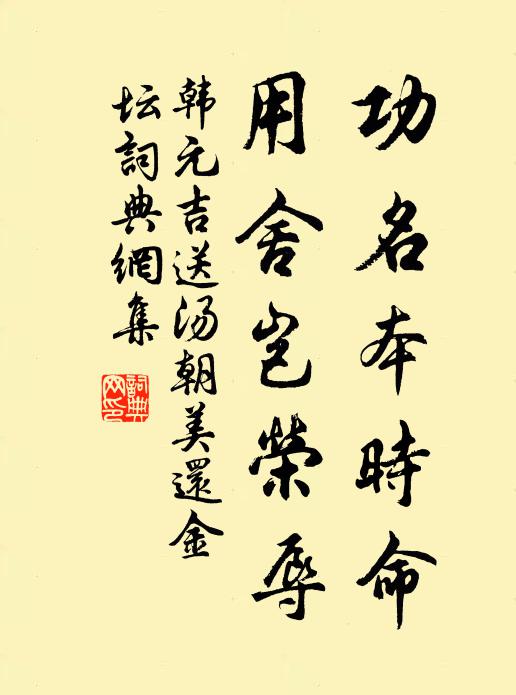 功名本時命
用舍岂榮辱
韩元吉送汤朝美還金
坛詞典網集
詞典
网印